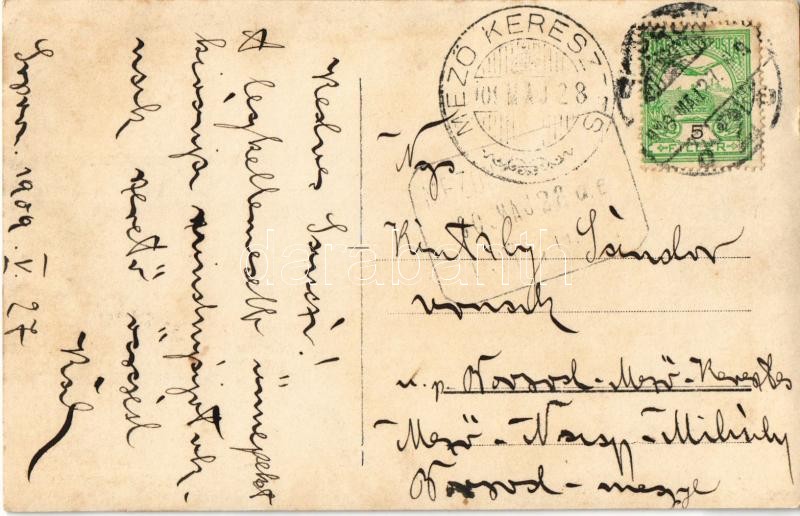 Kedves Sanyi!
A legkellemesebb ünnepeket
kívánja mindnyájatok-
nak szerető öcséd
Pál
1909. V. 27
MEZŐ KERESZTES
909 MAJ 28
MAGYAR POSTA
5
FILLÉR
Ngs
Sándor
urnak
u. p. Borsod-Mező-Keresztes
Mező-Nagy-Mihály
Borsod-megye
darabanth